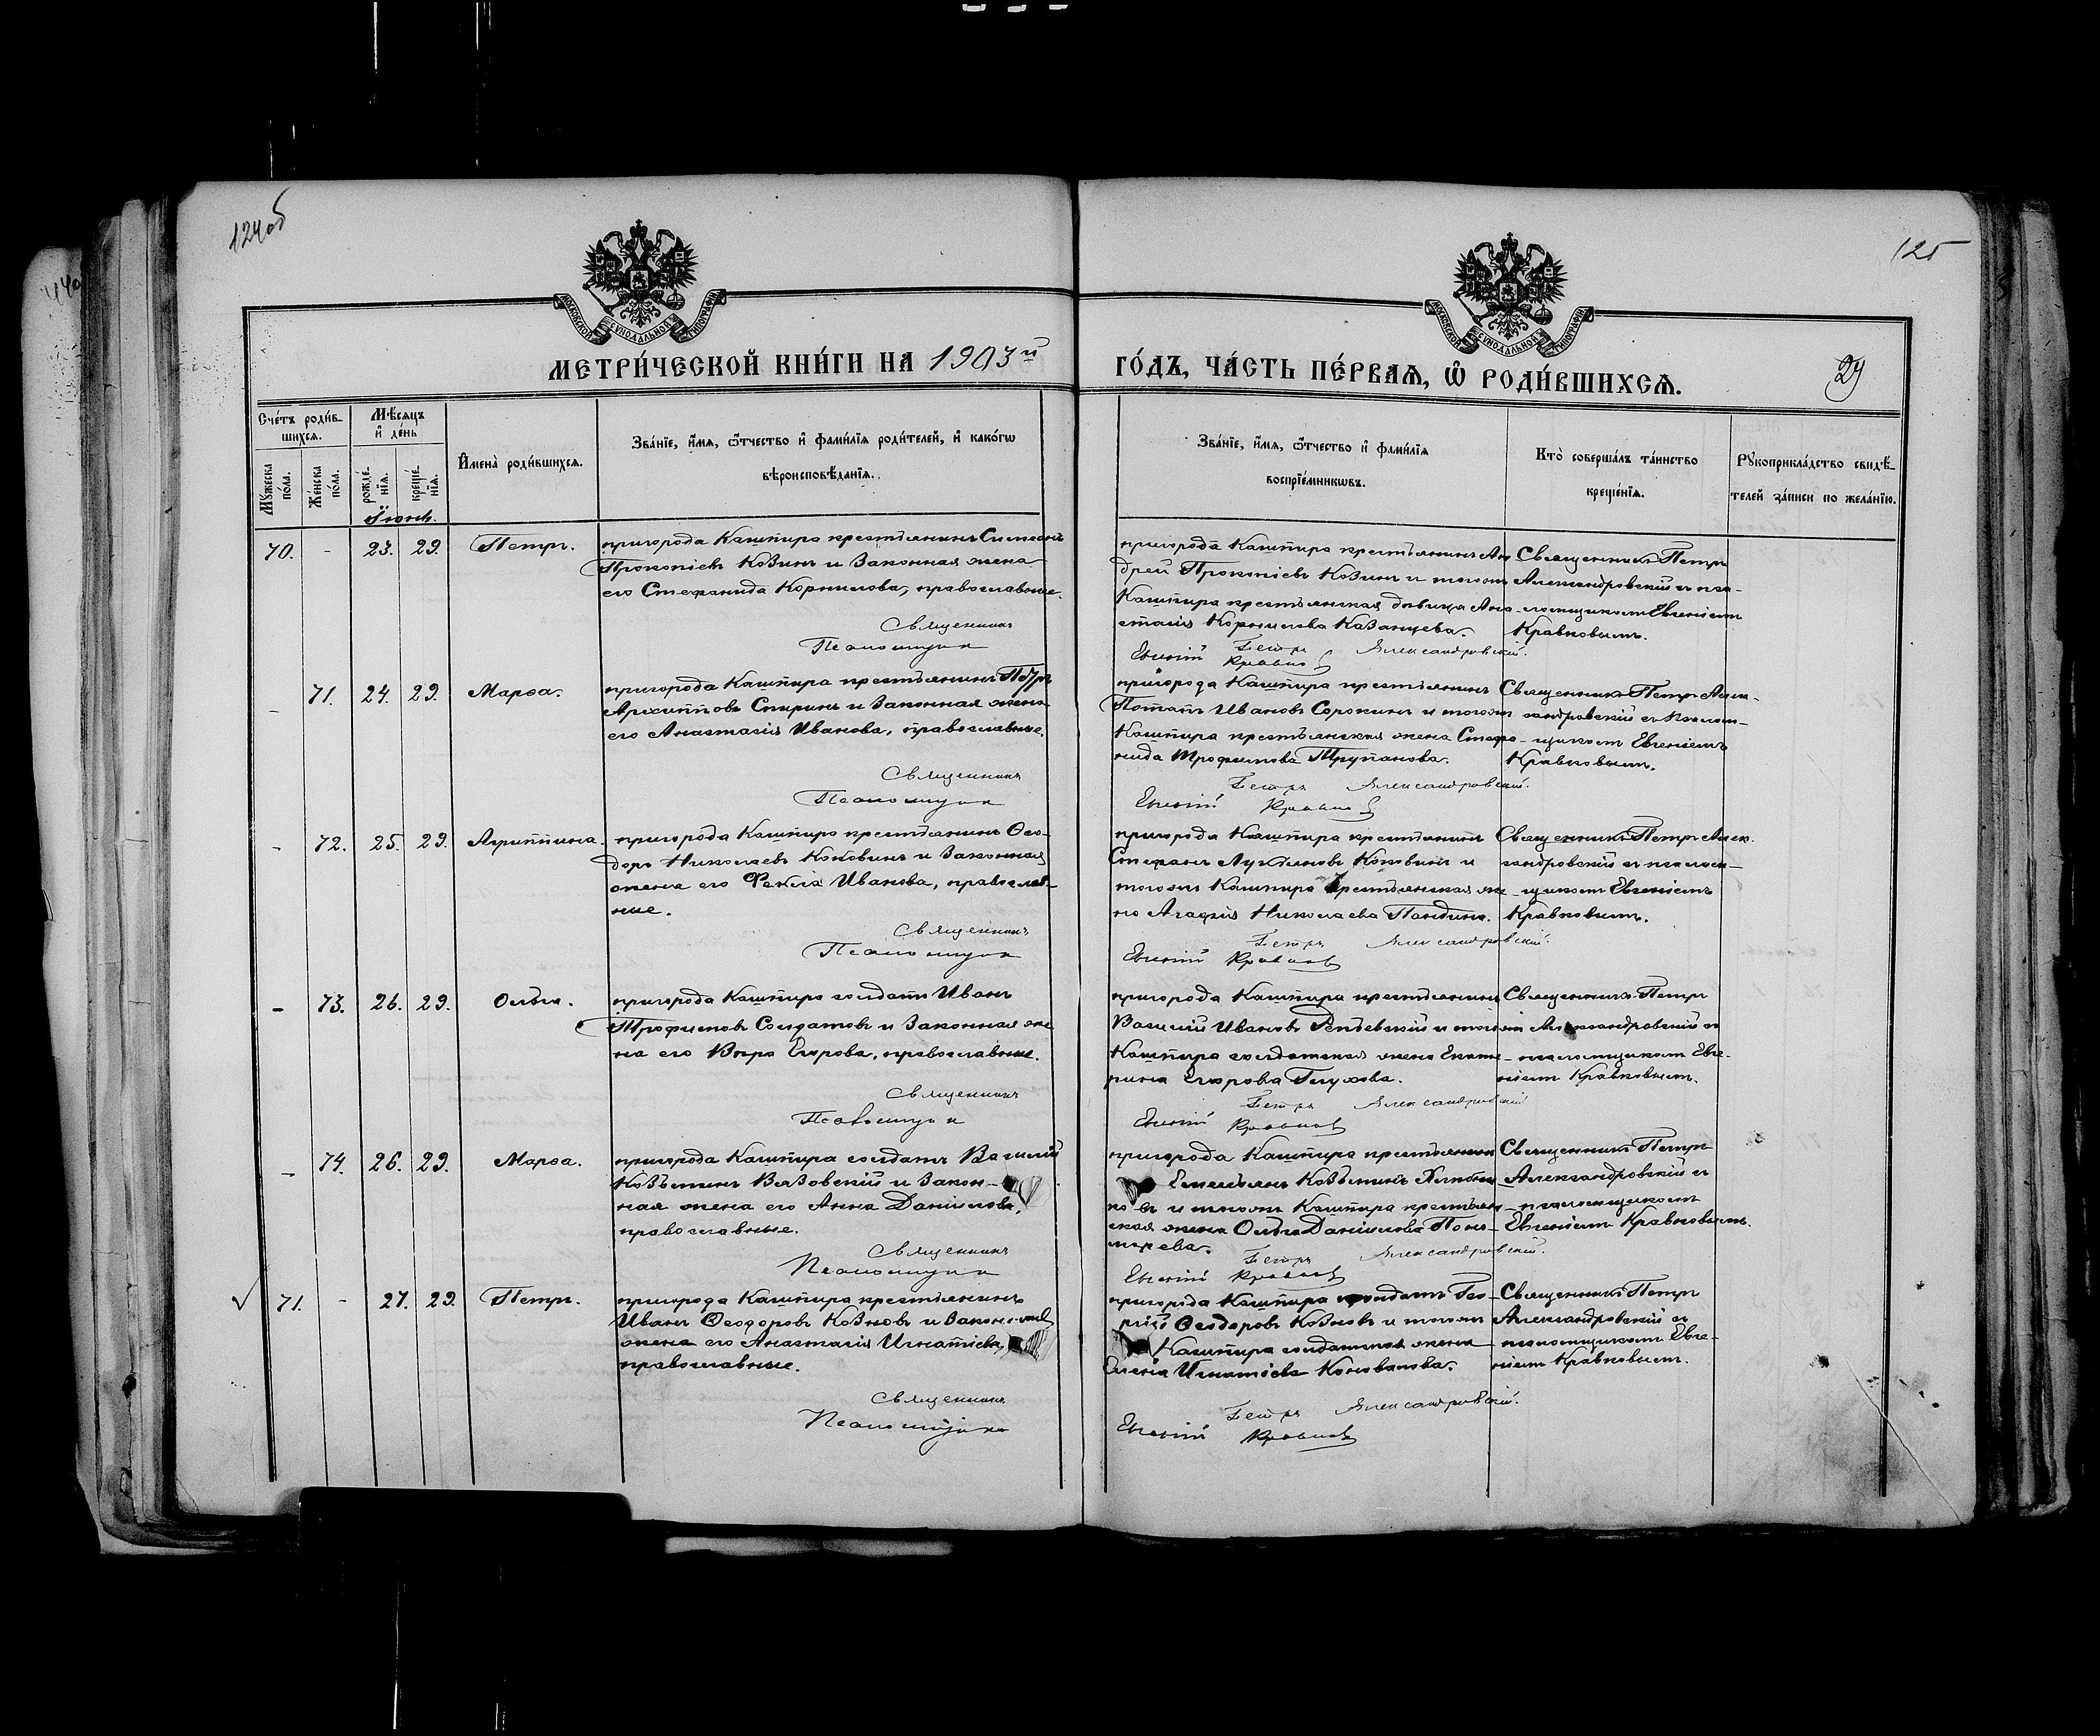 124об
125
МОСКОВСКОЙ СѴНОДАЛЬНОЙ ТИПОГРАФІИ
МОСКОВСКОЙ СѴНОДАЛЬНОЙ ТИПОГРАФІИ
МЕТРИ́ЧЕСКОЙ КНИ́ГИ НА 1903й
ГО́ДЪ, ЧА́СТЬ ПЕ́РВАѦ, Ѽ РОДИ́ВШИХСѦ.
29
Сче́тъ роди́в-
шихся.
Мѣ́сяцъ
и҆ де́нь
Мꙋ́жеска
по́ла.
Же́нска
по́ла.
рожде́-
нїѧ.
креще́-
нїѧ.
Іюнь.
И҆мена̀ роди́вшихсѧ.
Зва́нїе, и҆́мѧ, ѻ҆́тчество и҆ фами́лїѧ роди́телей, и҆ како́гѡ
вѣроисповѣ́данїѧ.
Зва́нїе, и҆́мѧ, ѻ҆́тчество и҆ фами́лїѧ
воспрїе́мникѡвъ.
Кто̀ соверша́лъ та́инство
креще́нїѧ.
Рꙋкоприкла́дство свидѣ́-
телей за́писи по жела́нїю.
70. - 23. 29. Петръ.
пригорода Кашпира крестьянинъ Симеонъ
Прокопіевъ Козинъ и законная жена
его Стефанида Корнилова, православные.
Священникъ
Псаломщикъ
пригорода Кашпира крестьянинъ Ан
дрей Прокопіевъ Козинъ и тогож
Кашпира крестьянская дѣвица Ана-
стасія Корнилова Казанцева.
Петръ Александровскій.
Евгеній Кравков
Священникъ Петръ
Александровскій съ пса-
ломщикомъ Евгеніемъ
Кравковымъ.
- 71. 24. 29. Марѳа.
пригорода Кашпира крестьянинъ Петръ
Архипповъ Спиринъ и законная жена
его Анастасія Иванова, православные.
Священникъ
Псаломщикъ
пригорода Кашпира крестьянинъ
Потапъ Ивановъ Сорокинъ и тогож
Кашпира крестьянская жена Стефа-
нида Трофимова Трупанова.
Петръ Александровскій.
Евгеній Кравков
Священникъ Петръ Алек-
сандровскій съ псалом-
щикомъ Евгеніемъ
Кравковымъ.
- 72. 25. 29. Агриппина.
пригорода Кашпира крестьянинъ Ѳео-
доръ Николаевъ Коновинъ и законная
жена его Ѳекла Иванова, православ-
ные.
Священникъ
Псаломщикъ
пригорода Кашпира крестьянинъ
Стефанъ Лукьяновъ Коновинъ и
тогож Кашпира крестьянская же-
на Агафія Николаева Пандина.
Петръ Александровскій.
Евгеній Кравков
Священникъ Петръ Алек-
сандровскій съ псалом-
щикомъ Евгеніемъ
Кравковымъ.
- 73. 26. 29. Ольга.
пригорода Кашпира солдатъ Иванъ
Трофимовъ Солдатовъ и законная же
на его Вѣра Егорова, православные.
Священникъ
Псаломщикъ
пригорода Кашпира крестьянинъ
Василій Ивановъ и тогож
Кашпира солдатская жена Екате-
рина Егорова Глухова.
Петръ Александровскій
Евгеній Кравков
Священникъ Петръ
Александровскій съ
псаломщикомъ Евге-
ніемъ Кравковымъ.
- 74. 26. 29. Марѳа.
пригорода Кашпира солдатъ Василій
Козьминъ Вязовскій и закон-
ная жена его Анна Даниилова,
православные.
Священникъ
Псаломщикъ
пригорода Кашпира крестьянинъ
Емельянъ Козьминъ
и тогож Кашпира крестьян-
ская жена Ольга Даніилова Поно-
марева.
Петръ Александровскій.
Евгеній Кравков
Священникъ Петръ
Александровскій съ
псаломщикомъ
Евгеніемъ Кравковымъ.
71. - 27. 29. Петръ.
пригорода Кашпира крестьянинъ
Иванъ Ѳеодоровъ Козновъ и законная
жена его Анастасія Игнатіева,
православные.
Священникъ
Псаломщикъ
пригорода Кашпира солдатъ Гео-
ргій Ѳеодоровъ Козновъ и тогож
Кашпира солдатская жена
Евгенія Игнатіева Коновалова.
Петръ Александровскій.
Евгеній Кравков
Священникъ Петръ
Александровскій съ
псаломщикомъ Евге-
ніемъ Кравковымъ.